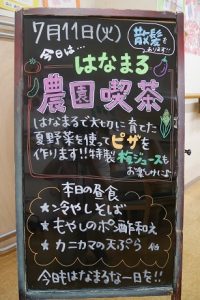 7月11日(火)
散髪を
あります!!
今日は…
はなまる
農園喫茶
はなまるで大切に育てた
夏野菜を使ってピザを
作ります!!特製梅ジュースも
お楽しみに♪
本日の昼食
★冷やしそば
★もやしのポン酢和え
★カニカマの天ぷら 他
今日もはなまるな一日を!!